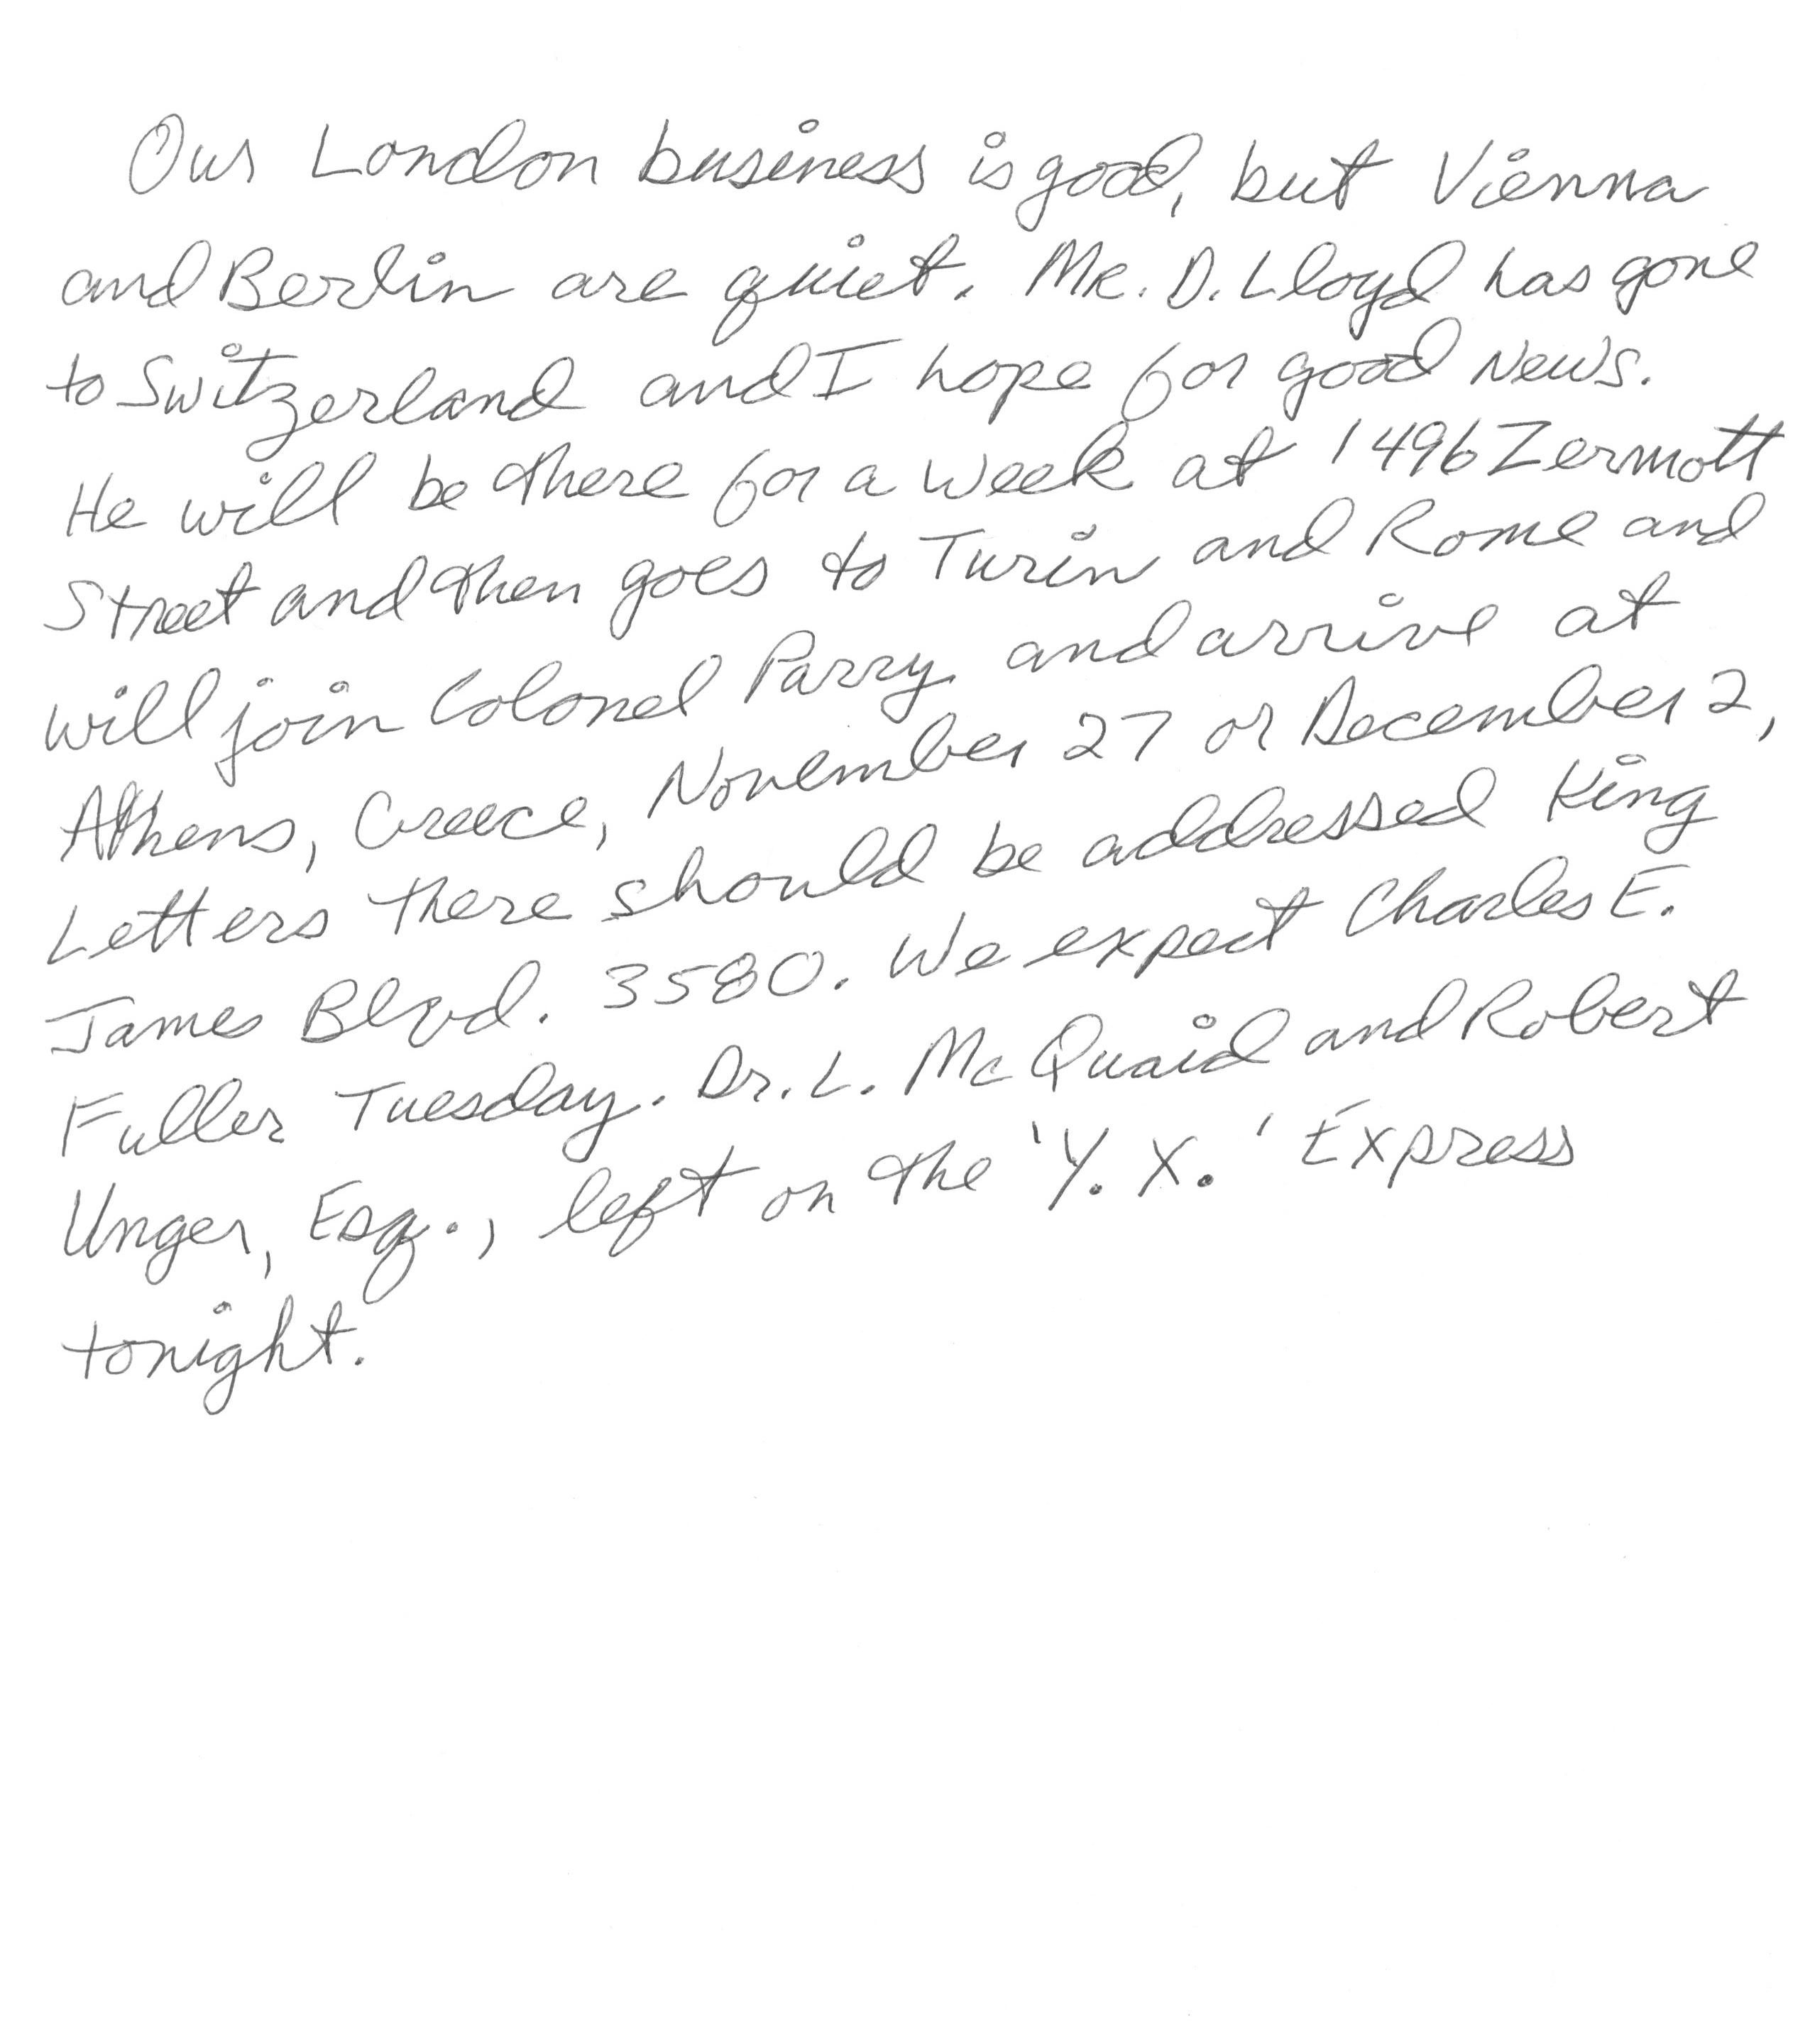 Our London business is good, but Vienna
and Berlin are quiet. Mr. D. Lloyd has gone
to Switzerland and I hope for good news.
He will be there for a week at 1496 Zermott
Street and then goes to Turin and Rome and
will join Colonel Parry and arrive at
Athens, Greece, November 27 or December 2,
Letters there should be addressed King
James Blvd. 3580. We expect Charles E.
Fuller Tuesday. Dr. L. McQuaid and Robert
Unger, Esq., left on the 'Y. X.' Express
tonight.